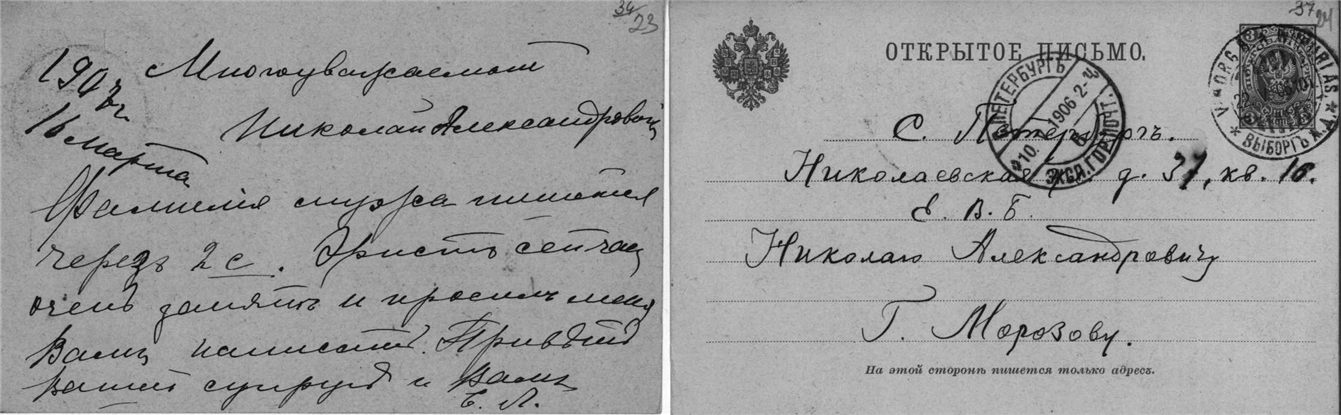 34
23
1907 г.
16 марта
Многоуважаемый
Николай Александровичъ
Фамилія мужа пишется
черезъ 2 с. Христъ сейчас
очень занятъ и просилъ меня
Вамъ написать. Привѣтъ
вашей супругѣ и Вамъ
Е. Л.
37
24
ОТКРЫТОЕ ПИСЬМО.
С. ПЕТЕРБУРГЪ
10. 1906 2-Ч
ЭКСП. ГОР. ПОЧТ.
ВЫБОРГЪ Ж.Д.
С. Петербургъ.
Николаевская, д. 37, кв. 16.
Е. В. Б.
Николаю Александровичу
Г. Морозову.
На этой сторонѣ пишется только адресъ.